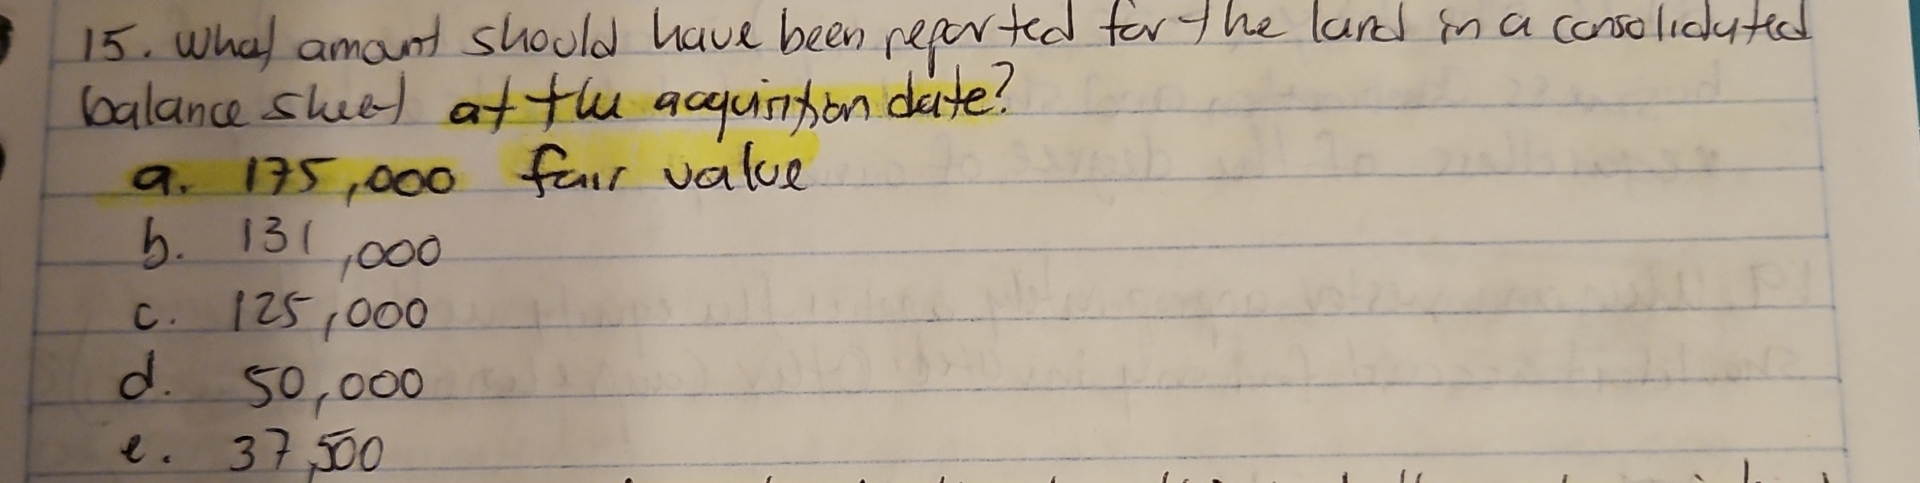 15. What amount should have been reported for the land in a consolidated
balance sheet at the acquisition date?
a. 175,000 fair value
b. 131,000
c. 125,000
d. 50,000
e. 37,500